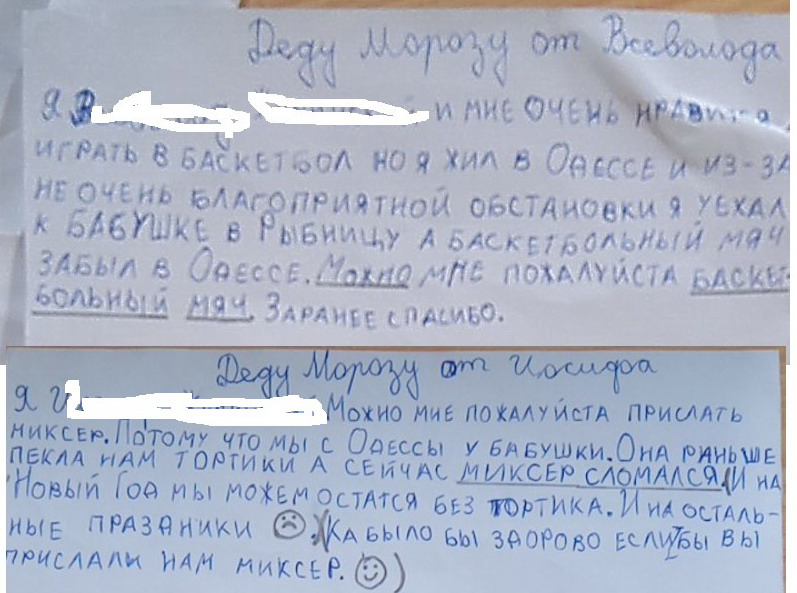 Деду Морозу от Всеволода
Я И МНЕ ОЧЕНЬ НРАВИТСЯ
ИГРАТЬ В БАСКЕТБОЛ НО Я ЖИЛ В ОДЕССЕ И ИЗ-ЗА
НЕ ОЧЕНЬ БЛАГОПРИЯТНОЙ ОБСТАНОВКИ Я УЕХАЛ
К БАБУШКЕ В РЫБНИЦУ А БАСКЕТБОЛЬНЫЙ МЯЧ
ЗАБЫЛ В ОДЕССЕ. МОЖНО МНЕ ПОЖАЛУЙСТА БАСКЕТ-
БОЛЬНЫЙ МЯЧ. ЗАРАНЕЕ СПАСИБО.
Деду Морозу от Иосифа
Я МОЖНО МНЕ ПОЖАЛУЙСТА ПРИСЛАТЬ
МИКСЕР. ПОТОМУ ЧТО МЫ С ОДЕССЫ У БАБУШКИ. ОНА РАНЬШЕ
ПЕКЛА НАМ ТОРТИКИ А СЕЙЧАС МИКСЕР СЛОМАЛСЯ И НА
НОВЫЙ ГОД МЫ МОЖЕМ ОСТАТСЯ БЕЗ ТОРТИКА. И НА ОСТАЛЬ-
НЫЕ ПРАЗДНИКИ ☹. КА БЫЛО БЫ ЗДОРОВО ЕСЛИ БЫ ВЫ
ПРИСЛАЛИ НАМ МИКСЕР. ☺)